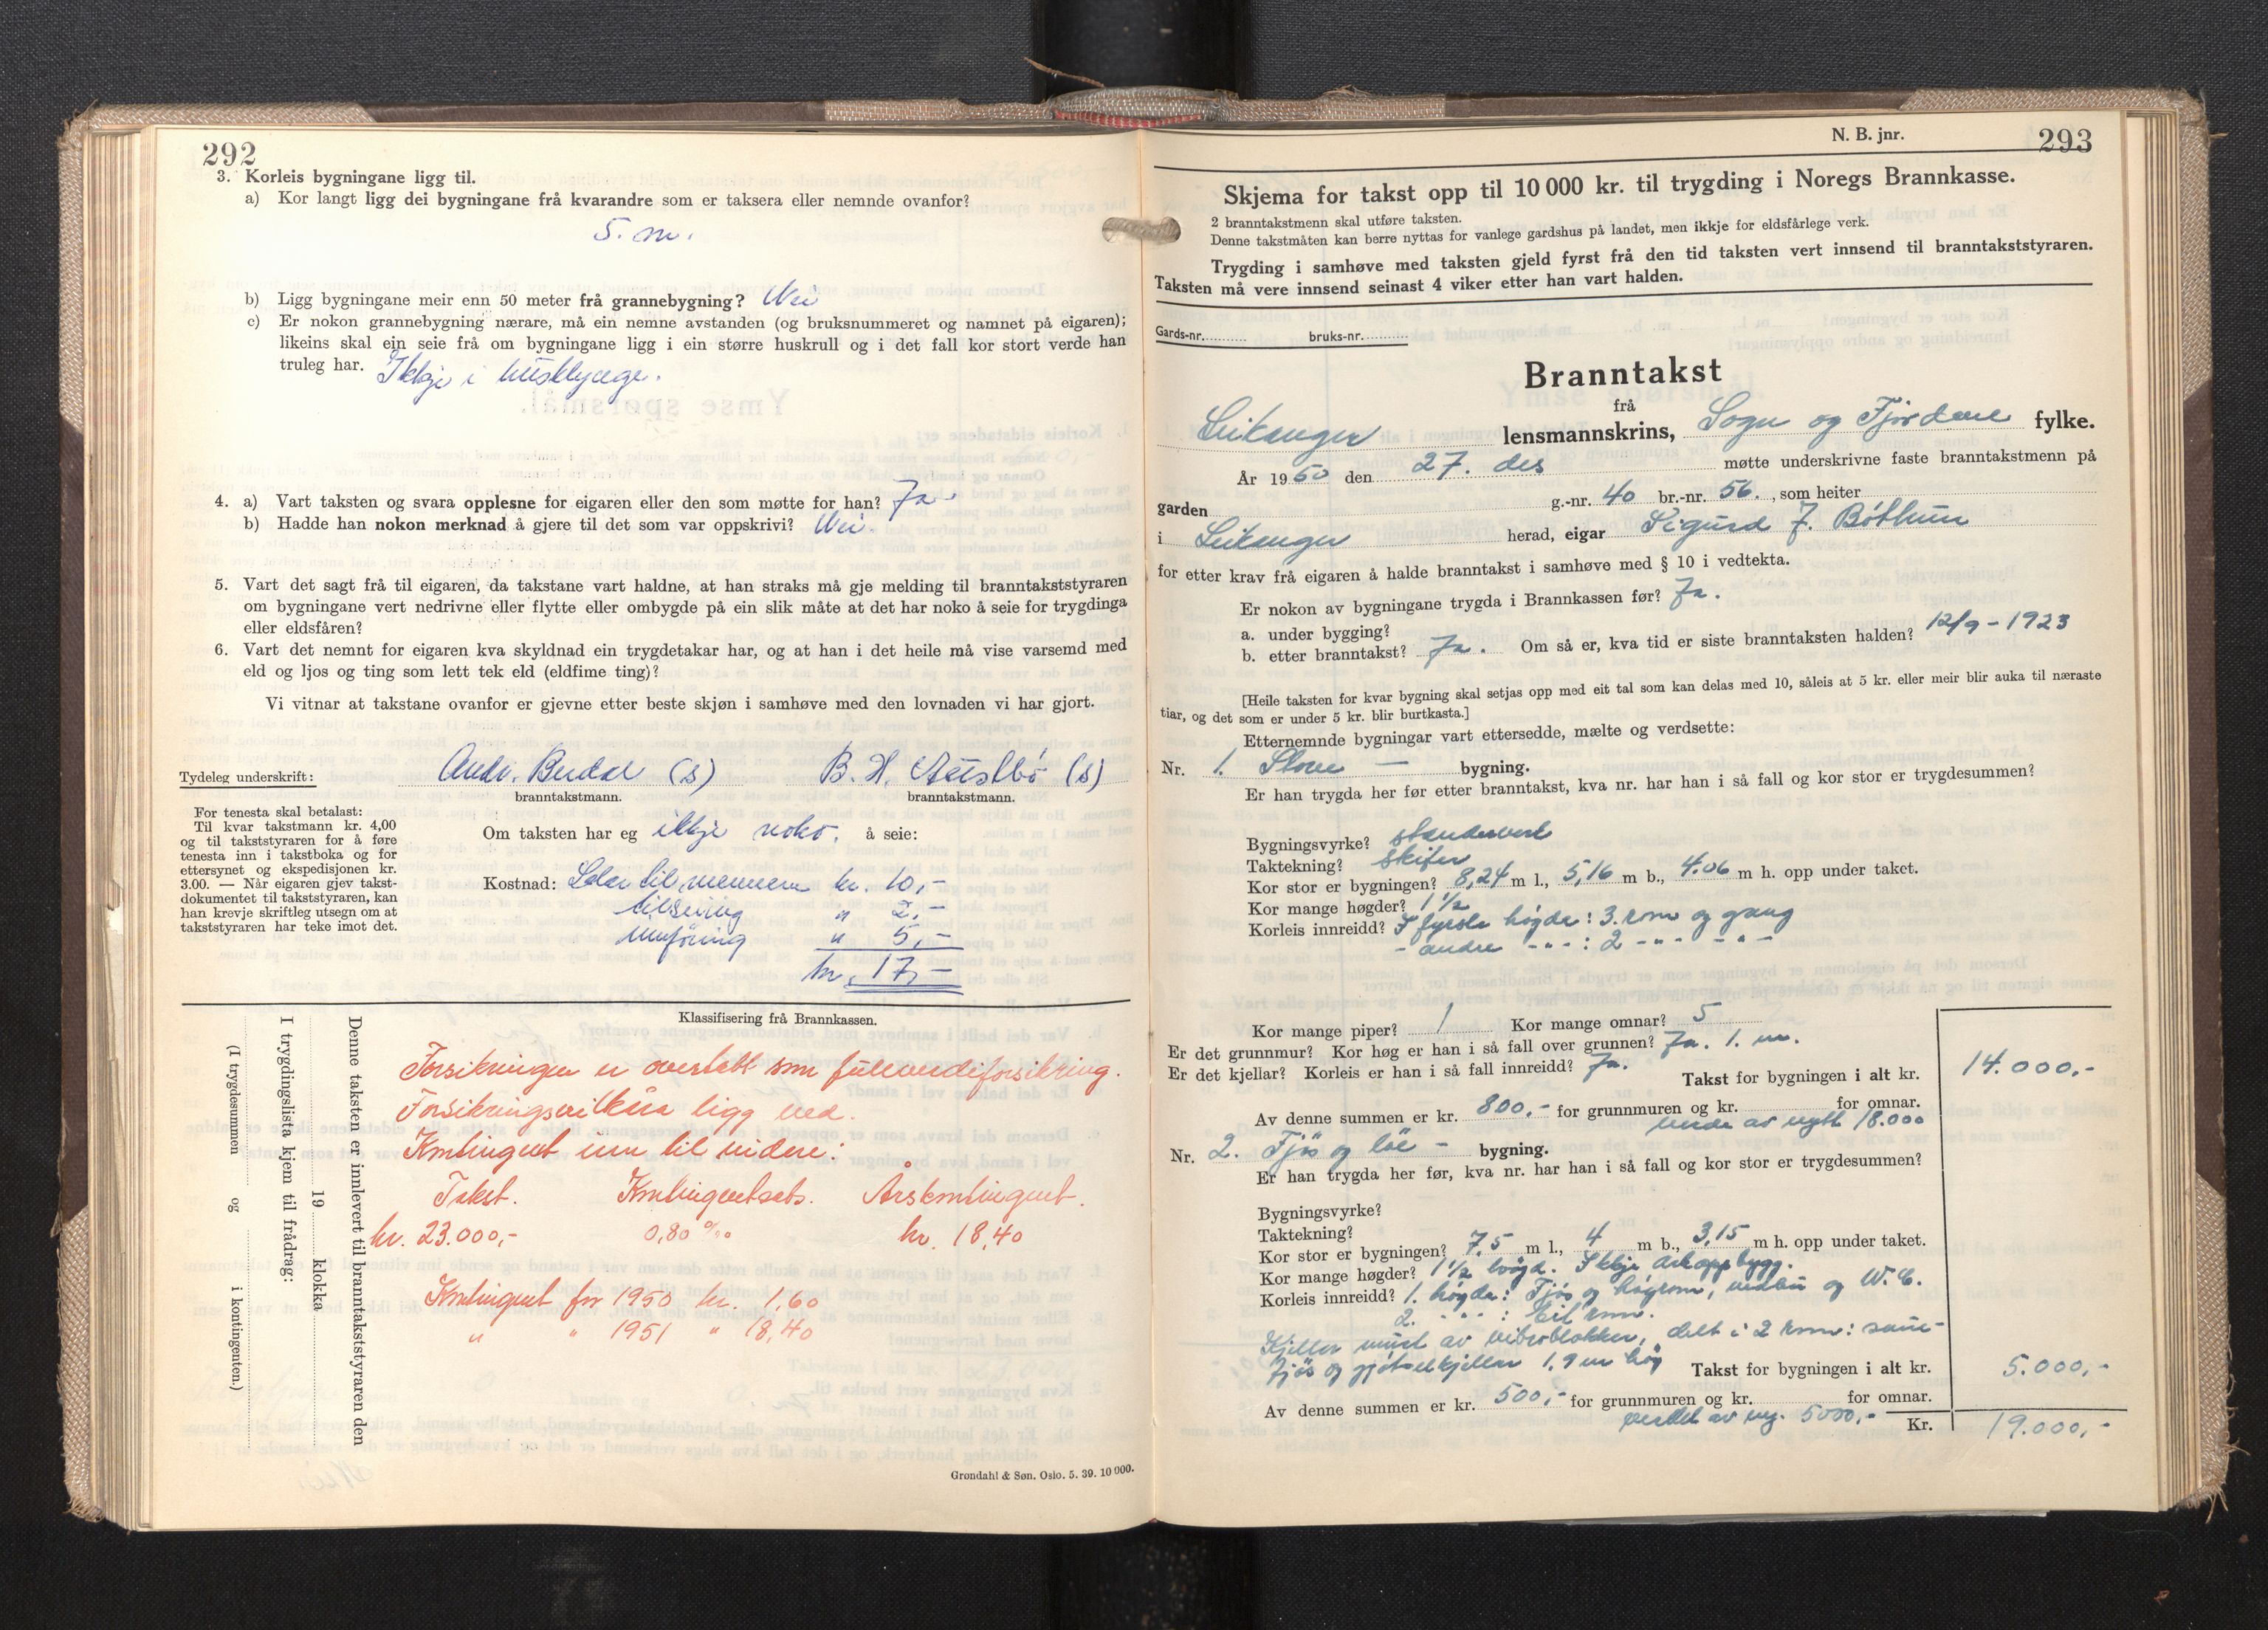 292
3. Korleis bygningane ligg til.
a) Kor langt ligg dei bygningane frå kvarandre som er taksera eller nemnde ovanfor?
5. m.
b) Ligg bygningane meir enn 50 meter frå grannebygning? Nei
c) Er nokon grannebygning nærare, må ein nemne avstanden (og bruksnummeret og namnet på eigaren);
likeins skal ein seie frå om bygningane ligg i ein større huskrull og i det fall kor stort verde han
truleg har. Ikkje i husklynge.
4. a) Vart taksten og svara opplesne for eigaren eller den som møtte for han? Ja.
b) Hadde han nokon merknad å gjere til det som var oppskrivi? Nei.
5. Vart det sagt frå til eigaren, da takstane vart haldne, at han straks må gje melding til branntakststyraren
om bygningane vert nedrivne eller flytte eller ombygde på ein slik måte at det har noko å seie for trygdinga
eller eldsfåren?
6. Vart det nemnt for eigaren kva skyldnad ein trygdetakar har, og at han i det heile må vise varsemd med
eld og ljos og ting som lett tek eld (eldfime ting)?
Vi vitnar at takstane ovanfor er gjevne etter beste skjøn i samhøve med den lovnaden vi har gjort.
Tydeleg underskrift: Andr. Berdal (s) B. H. (s)
branntakstmann. branntakstmann.
For tenesta skal betalast:
Til kvar takstmann kr. 4,00
og til takststyraren for å føre
tenesta inn i takstboka og for
ettersynet og ekspedisjonen kr.
3.00. — Når eigaren gjev takst-
dokumentet til takststyraren, kan
han krevje skriftleg utsegn om at
takststyraren har teke imot det.
Om taksten har eg ikkje noko. å seie:
Kostnad: til mennene kr. 10,-
" 2,-
Innføring " 5,-
kr. 17,-
Klassifisering frå Brannkassen.
Forsikringen er overtatt som fullverdiforsikring.
Forsikringsvilkår ligg ved.
Kontingent inn til videre:
Takst. Kontingentsats. Årskontingent.
kr. 23.000,- 0,80 ‰ kr. 18,40
Kontingent for 1950 kr. 1,60
" " 1951 " 18,40
Denne taksten er innlevert til branntakststyraren den
19 klokka
I trygdingslista kjem til frådrag:
(I trygdesummen og i kontingenten.)
Grøndahl & Søn. Oslo. 5. 39. 10 000.
N. B. jnr. 293
Skjema for takst opp til 10 000 kr. til trygding i Noregs Brannkasse.
2 branntakstmenn skal utføre taksten.
Denne takstmåten kan berre nyttas for vanlege gardshus på landet, men ikkje for eldsfårlege verk.
Trygding i samhøve med taksten gjeld fyrst frå den tid taksten vert innsend til branntakststyraren.
Taksten må vere innsend seinast 4 viker etter han vart halden.
Gards-nr. bruks-nr.
Branntakst
frå
Leikanger lensmannskrins, Sogn og Fjordane fylke.
År 1950 den 27. des møtte underskrivne faste branntakstmenn på
garden g.-nr. 40 br.-nr. 56. , som heiter
i Leikanger herad, eigar Sigurd J. Bøthun
for etter krav frå eigaren å halde branntakst i samhøve med § 10 i vedtekta.
Er nokon av bygningane trygda i Brannkassen før? Ja.
a. under bygging?
b. etter branntakst? Ja. Om så er, kva tid er siste branntaksten halden? 12/9-1923
[Heile taksten for kvar bygning skal setjas opp med eit tal som kan delas med 10, såleis at 5 kr. eller meir blir auka til næraste
tiar, og det som er under 5 kr. blir burtkasta.]
Etternemnde bygningar vart ettersedde, mælte og verdsette:
Nr. 1. Stove — bygning.
Er han trygda her før etter branntakst, kva nr. har han i så fall og kor stor er trygdesummen?
Bygningsvyrke? standarverk
Taktekning? skifer
Kor stor er bygningen? 8,24 m l., 5,16 m b., 4.06 m h. opp under taket.
Kor mange høgder? 1 1/2
Korleis innreidd? I fyrste høgda: 3. rom og gang
- andre -"-: 2 -"- -"-
Kor mange piper? 1 Kor mange omnar? 5
Er det grunnmur? Kor høg er han i så fall over grunnen? Ja. 1. m.
Er det kjellar? Korleis er han i så fall innreidd? Ja.
Takst for bygningen i alt kr. 14.000,-
Av denne summen er kr. 800,- for grunnmuren og kr. for omnar.
verde av nytt 18.000
Nr. 2. Fjös og löe - bygning.
Er han trygda her før, kva nr. har han i så fall og kor stor er trygdesummen?
Bygningsvyrke?
Taktekning?
Kor stor er bygningen? 7,5 m l., 4 m b., 3,15 m h. opp under taket.
Kor mange høgder? 1 1/2 høgd. Ikkje arkoppbygg.
Korleis innreidd? 1. høgda: Fjös og høyrom, vedbu og W.C.
2. -"- : Eit rom.
Kjellar murt av vibroblokker, delt i 2 rom: saue-
fjös og gjødselkjellar 1,9 m høg Takst for bygningen i alt kr. 5.000,-
Av denne summen er kr. 500,- for grunnmuren og kr. for omnar.
verdet av ny. 5000,- Kr. 19.000,-